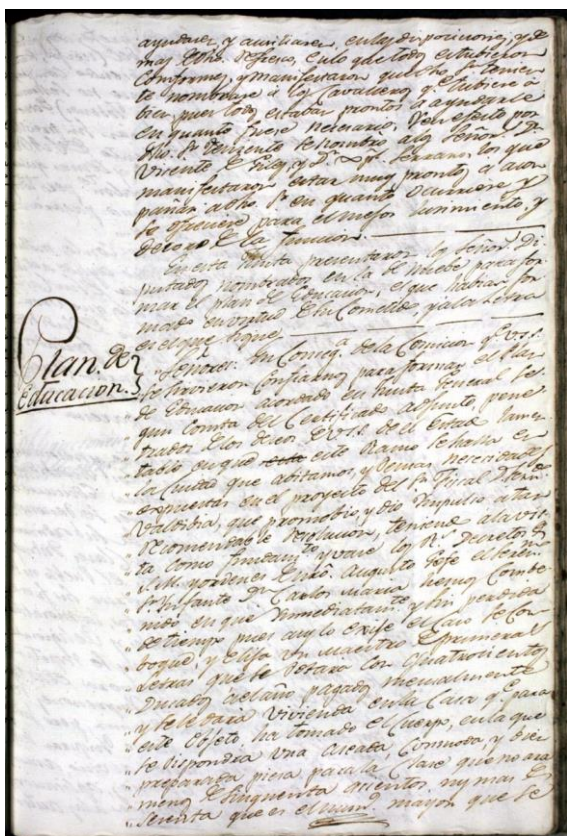 ayudarle, y auxiliarle, en las disposiciones, y de
mas dho. Refresco, en lo que todos estubieron
Conformes, y manifestaron que dho. Sr. tenien
te nombrase a los Cavalleros q. tubiere a
bien pues todos estaban prontos a ayudarle
en quanto fuese necesario. Y en efecto por
dho. Sr. Teniente se nombró a los Señores D.
Vicente y D. los que
manifestaron estar muy prontos a acom
pañar a dho. Sr. en quanto ocurriere y
se ofreciere para el mejor lucimiento, y
decoro de la funcion.
En esta Junta presentaron los Señores Di
putados nombrados en la de nuebe para for
mar el plan de Educacion, el que habian for
mado en virtud de su Comision, y a la letra
es el que sigue
Plan de
Educacion.
Señores: En Conseq.a de la Comision q.e V.SS.
se sirvieron Confiarnos para formar el Plan
de Educacion acordado en Junta General se
gun Consta del Certificado adjunto, pene
trados de los deseos de V.SS. del Estado lamen
table en que este Ramo se halla en
la Ciudad que abitamos, y demas necesidades
expuestas en el proyecto del Sr. Fiscal
Valdibia, que promobio, y dio impulso a tan
recomendable resolucion, teniendo a la vis
ta como fundamento y vase los R.s Decretos de
S.M. y ordenes de nro. Augusto Gefe el Seren.
Sr. Infante Dn. Carlos Maria hemos Combe
nido en que inmediatamente y sin perdida
de tiempo pues asi lo exije el Caso se Con
boque, y elija un Maestro de primeras
Letras que se dotara Con quatrocientos
Ducados al año, pagados mensualmente
y se le dara Vivienda en la Casa q.e para
este objeto ha tomado el Cuerpo, en la que
se dispondra una Aseada, Commoda, y bien
preparada pieza para la Clase que no ara
menos de Cinquenta asientos, ny mas de
sesenta que es el num.o mayor que se